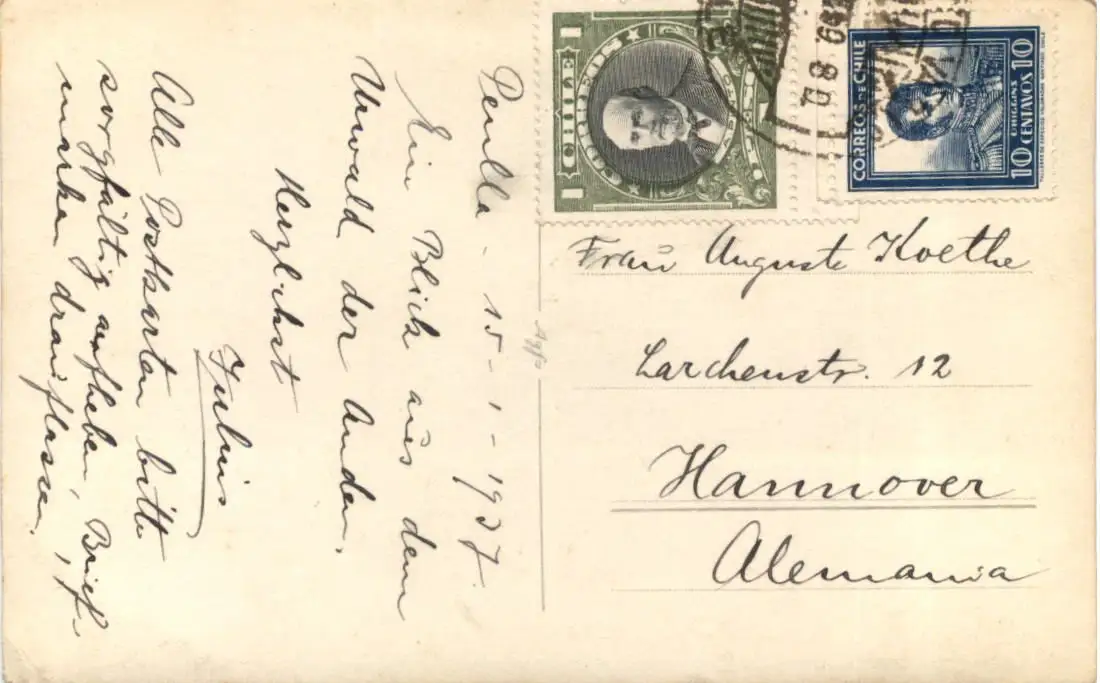 Peulla - 15 - 1 - 1937.
Ein Blick aus dem
Urwald der Anden.
Herzlichst
Julius
Alle Postkarten bitte
sorgfältig aufheben, Brief-
marken drauflassen.
1 CHILE 1
CORREOS
CORREOS DE CHILE
O'HIGGINS
10 CENTAVOS 10
Frau Auguste Koethe
Larchenstr. 12
Hannover
Alemania
Agfa